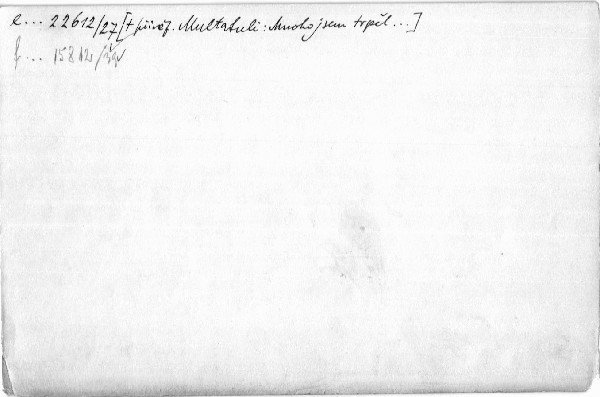 e... 22612/27 [+ přívěš. Multatuli: Mnoho jsem trpěl...]
f... 15812/